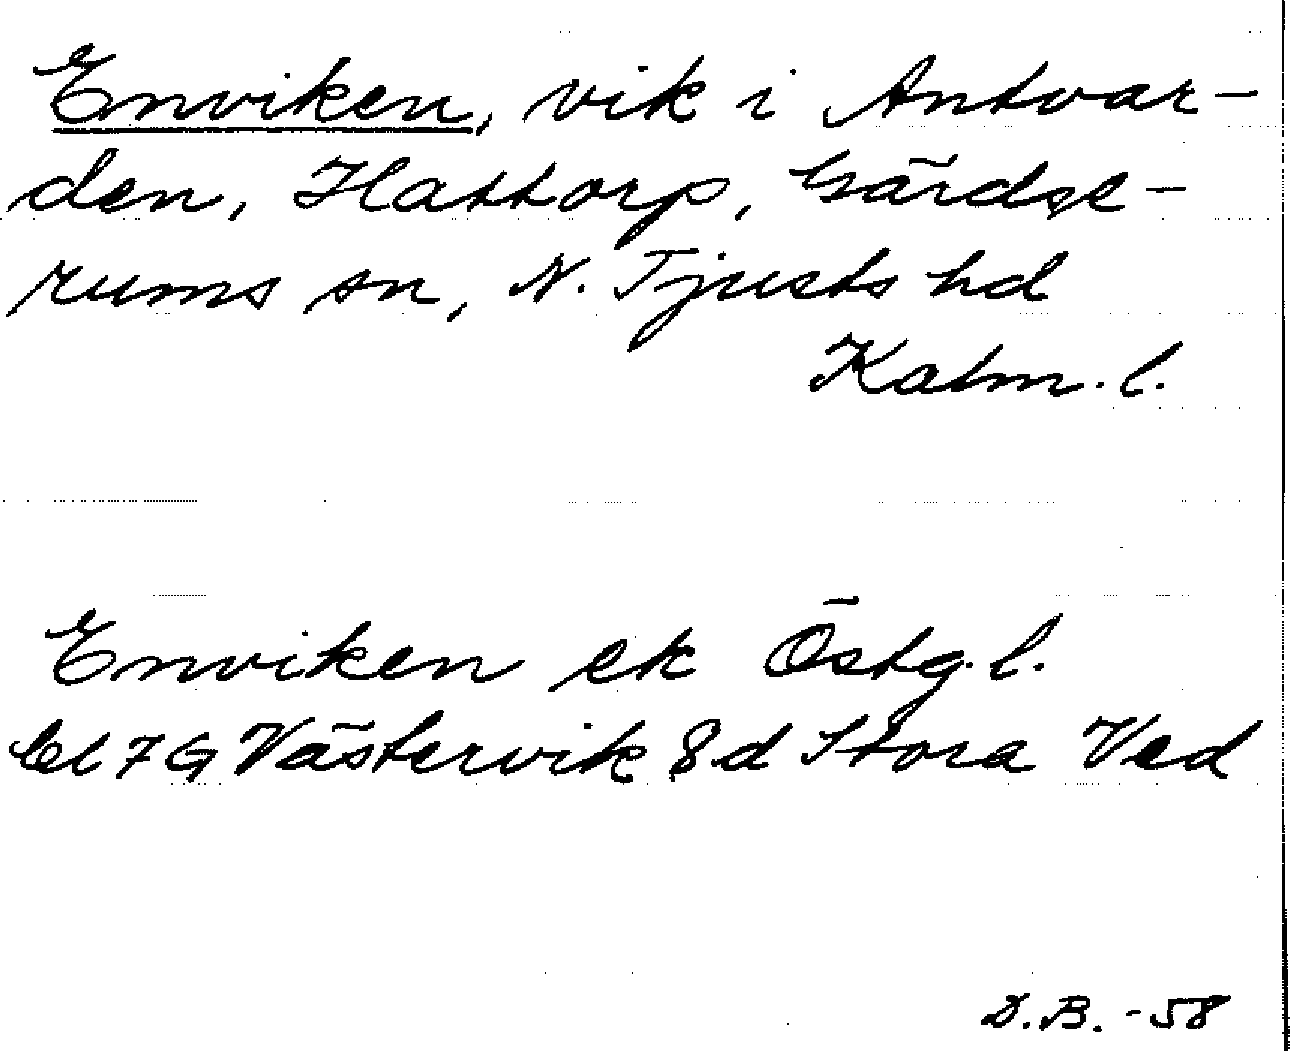 Enviken, vik i Antvar-
den, Hattorp, Gärdse-
rums sn, N. Tjusts hd
Kalm. l.
Enviken ek Östg. l.
bl 7 G Västervik 8d Stora Ved
D.B. -58